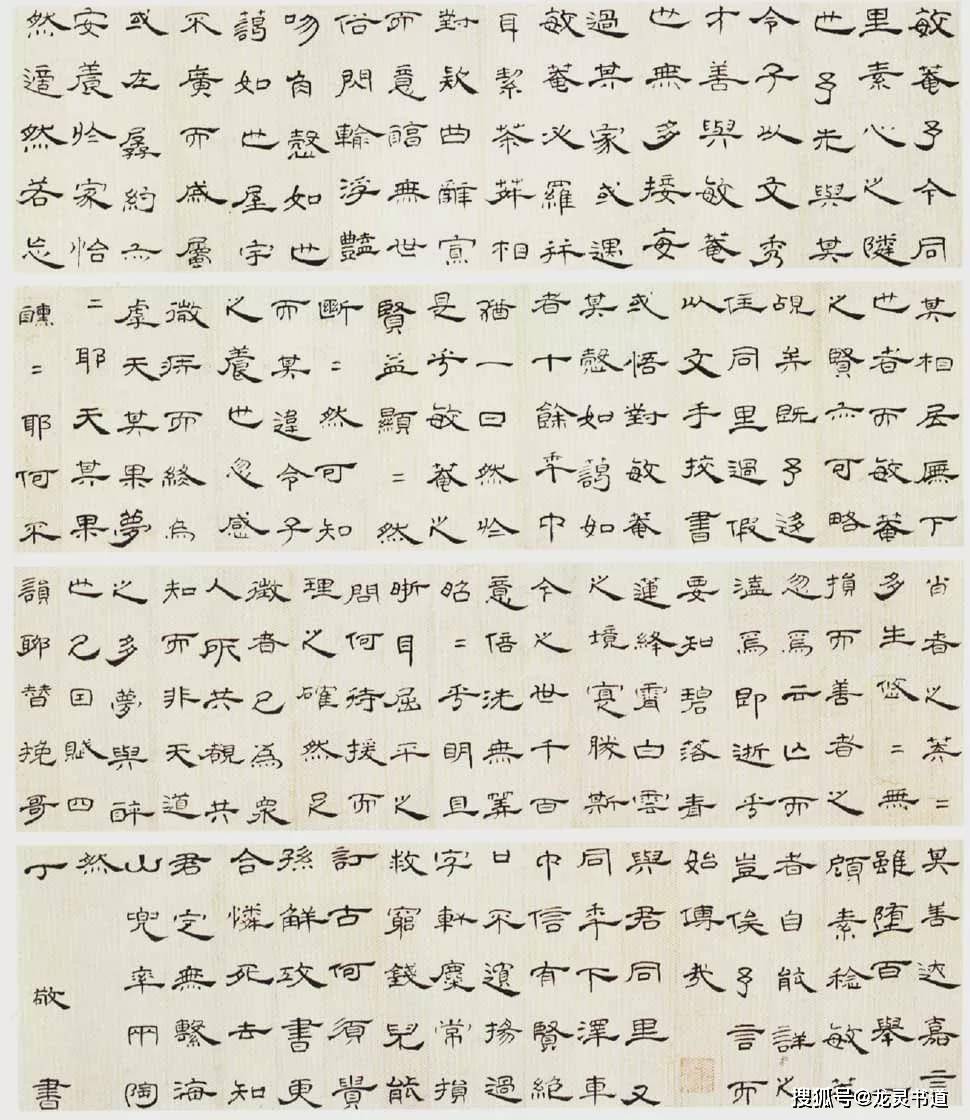 敏菴予今同
里素心之隣
也予先與其
令子以文秀
才善與敏菴
也無多接每
過某家或遇
敏菴必羅
耳絜茶荈相
對欵曲雖
而意無世
俗閃輸浮豔
吻自慤如也
藹如也屋宇
不廣而咸屬
或在孱約亦
安養於家怡
然適然若忘
其相居廡下
也者而敏菴
之賢亦可略
覘矣既予迻
住同里過假
以文手挍書
或悟對敏菴
其慤如藹如
者十餘年中
猶一日然於
是乎敏菴之
賢益顯二然
斷二然可知
而其違令子
之養也忽感
微疴而終烏
虖天其果夢
二耶天其果
醺二耶何不
省者之二
多生悠二無
損而善者之
忽焉云亡而
溘焉即逝乎
要知碧落青
蓮絳霄白雲
之境寔勝斯
今之世千百
意悟洗無筭
昭二乎明且
晰耳屈平之
問何待援而
理之確然足
徵者已為眾
人所共覩共
知而非天道
之多夢與醉
也已因賦四
韻聊替挽哥
其善达嘉言
雖堕百舉
顧素稔敏菴
者自能詳之
豈俟予言而
始傳哉
與君同里又
同年下澤車
中信有賢絕
口不揚過
字常損
救窮錢兒能
訂古何須貴
孫解攻書更
合憐死去知
君定無繫海
山兜率兩陶
然
丁敬書
搜狐号@龙灵书道